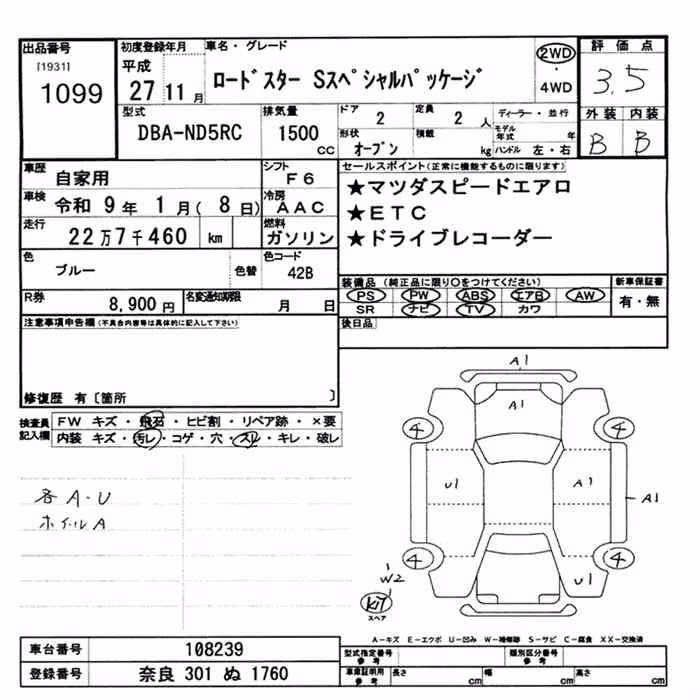 出品番号
[1931]
1099
初度登録年月
平成
27 11 月
車名・グレード
ロードスター Sスペシャルパッケージ
2WD
・
4WD
評価点
3.5
外装 内装
B B
型式
DBA-ND5RC
排気量
1500
cc
ドア
2
定員
2 人
形状
オープン
積載
kg
ディーラー・並行
モデル年式 年
ハンドル 左・右
車歴
自家用
シフト
F6
車検
令和 9 年 1 月( 8 日)
冷房
AAC
走行
22 万 7 千 460 km
燃料
ガソリン
色
ブルー
色替
色コード
42B
R券
8,900 円
名変通知期限
月 日
セールスポイント(正常に機能するものに限ります)
★マツダスピードエアロ
★ETC
★ドライブレコーダー
装備品(純正品に限り○をつけてください)
PS PW ABS エアB AW
SR ナビ TV カワ
新車保証書
有・無
後日品
注意事項申告欄(不具合内容等は具体的に記入して下さい)
修復歴 有〔箇所 〕
検査員
記入欄
FW キズ・飛石・ヒビ割・リペア跡・×要
内装 キズ・汚レ・コゲ・穴・スレ・キレ・破レ
各A・U
ホイールA
A1
A1
4 4
U1 A1 A1
4 4
W2 U1
KIT
スペア
A-キズ E-エクボ U-凹み W-補修跡 S-サビ C-腐食 XX-交換済
車台番号
108239
登録番号
奈良 301 ぬ 1760
型式指定番号
参考
類別区分番号
参考
車庫証明用
参考
長さ cm
幅 cm
高さ cm